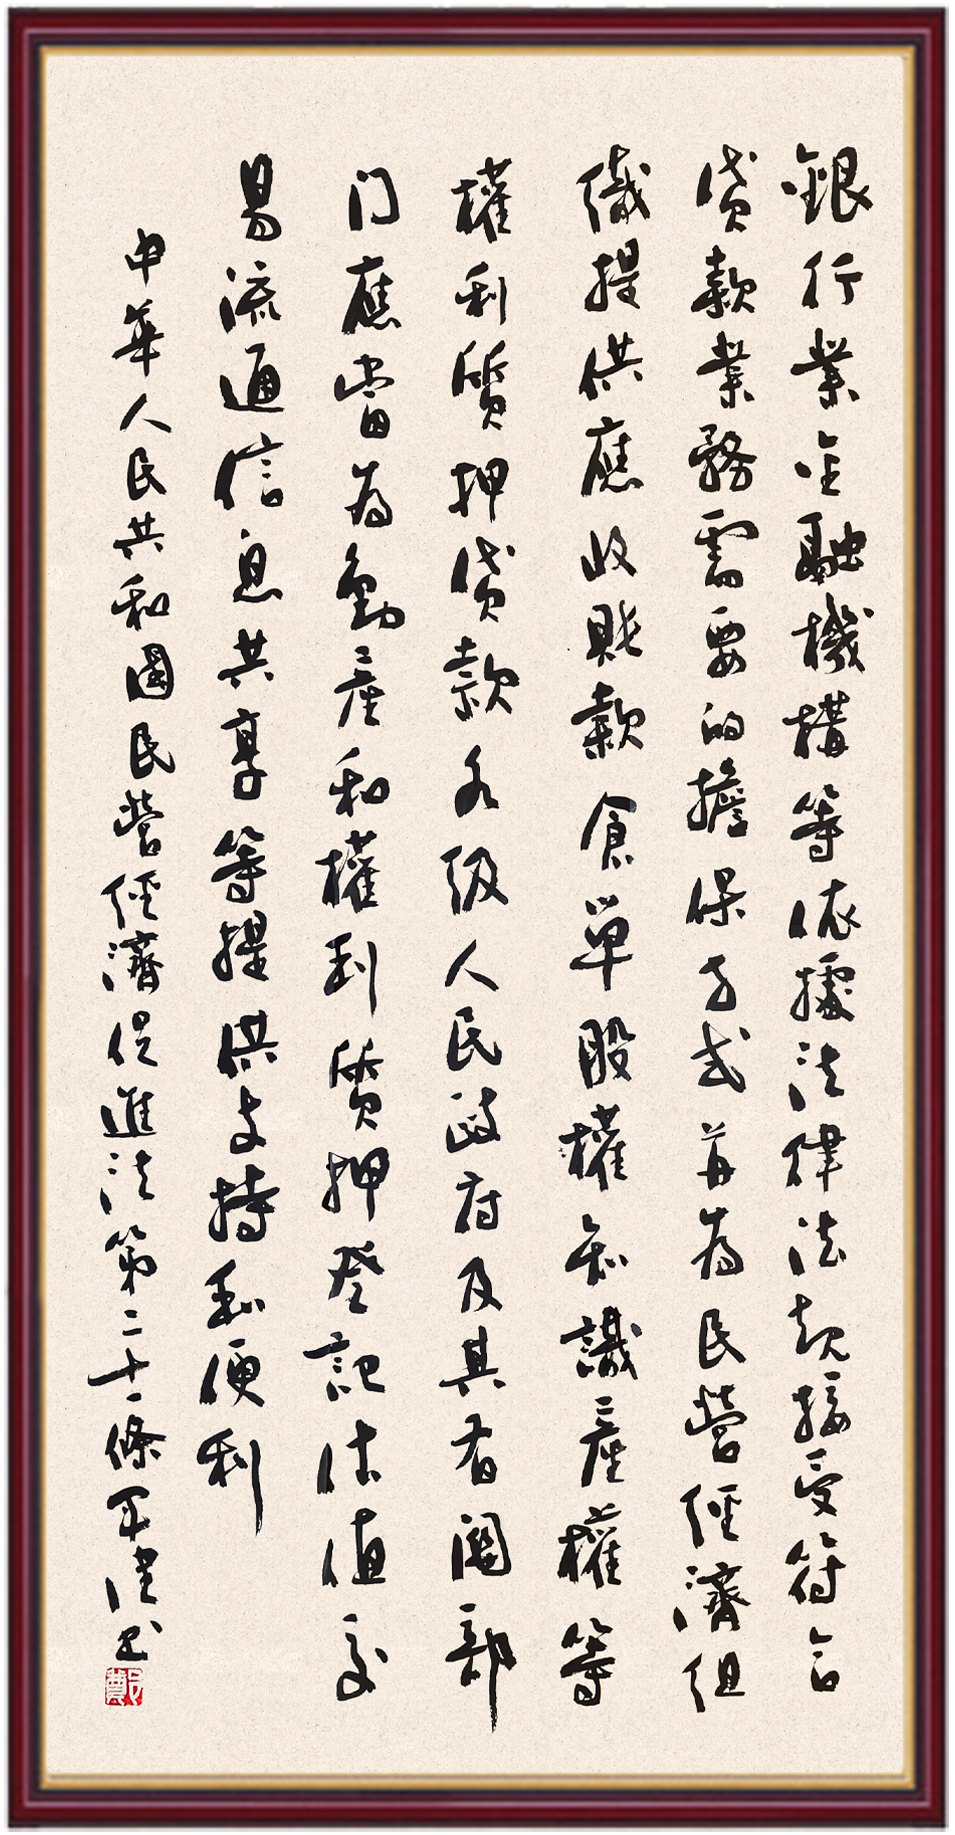 銀行業金融機構等依據法律法規接受符合
貸款業務需要的擔保方式并为民營經濟組
織提供應收賬款倉單股權知識產權等
權利質押貸款各级人民政府及其有關部
门應當为動產和權利質押登記估值交
易流通信息共享等提供支持和便利
中華人民共和國民營經濟促進法第二十二條书